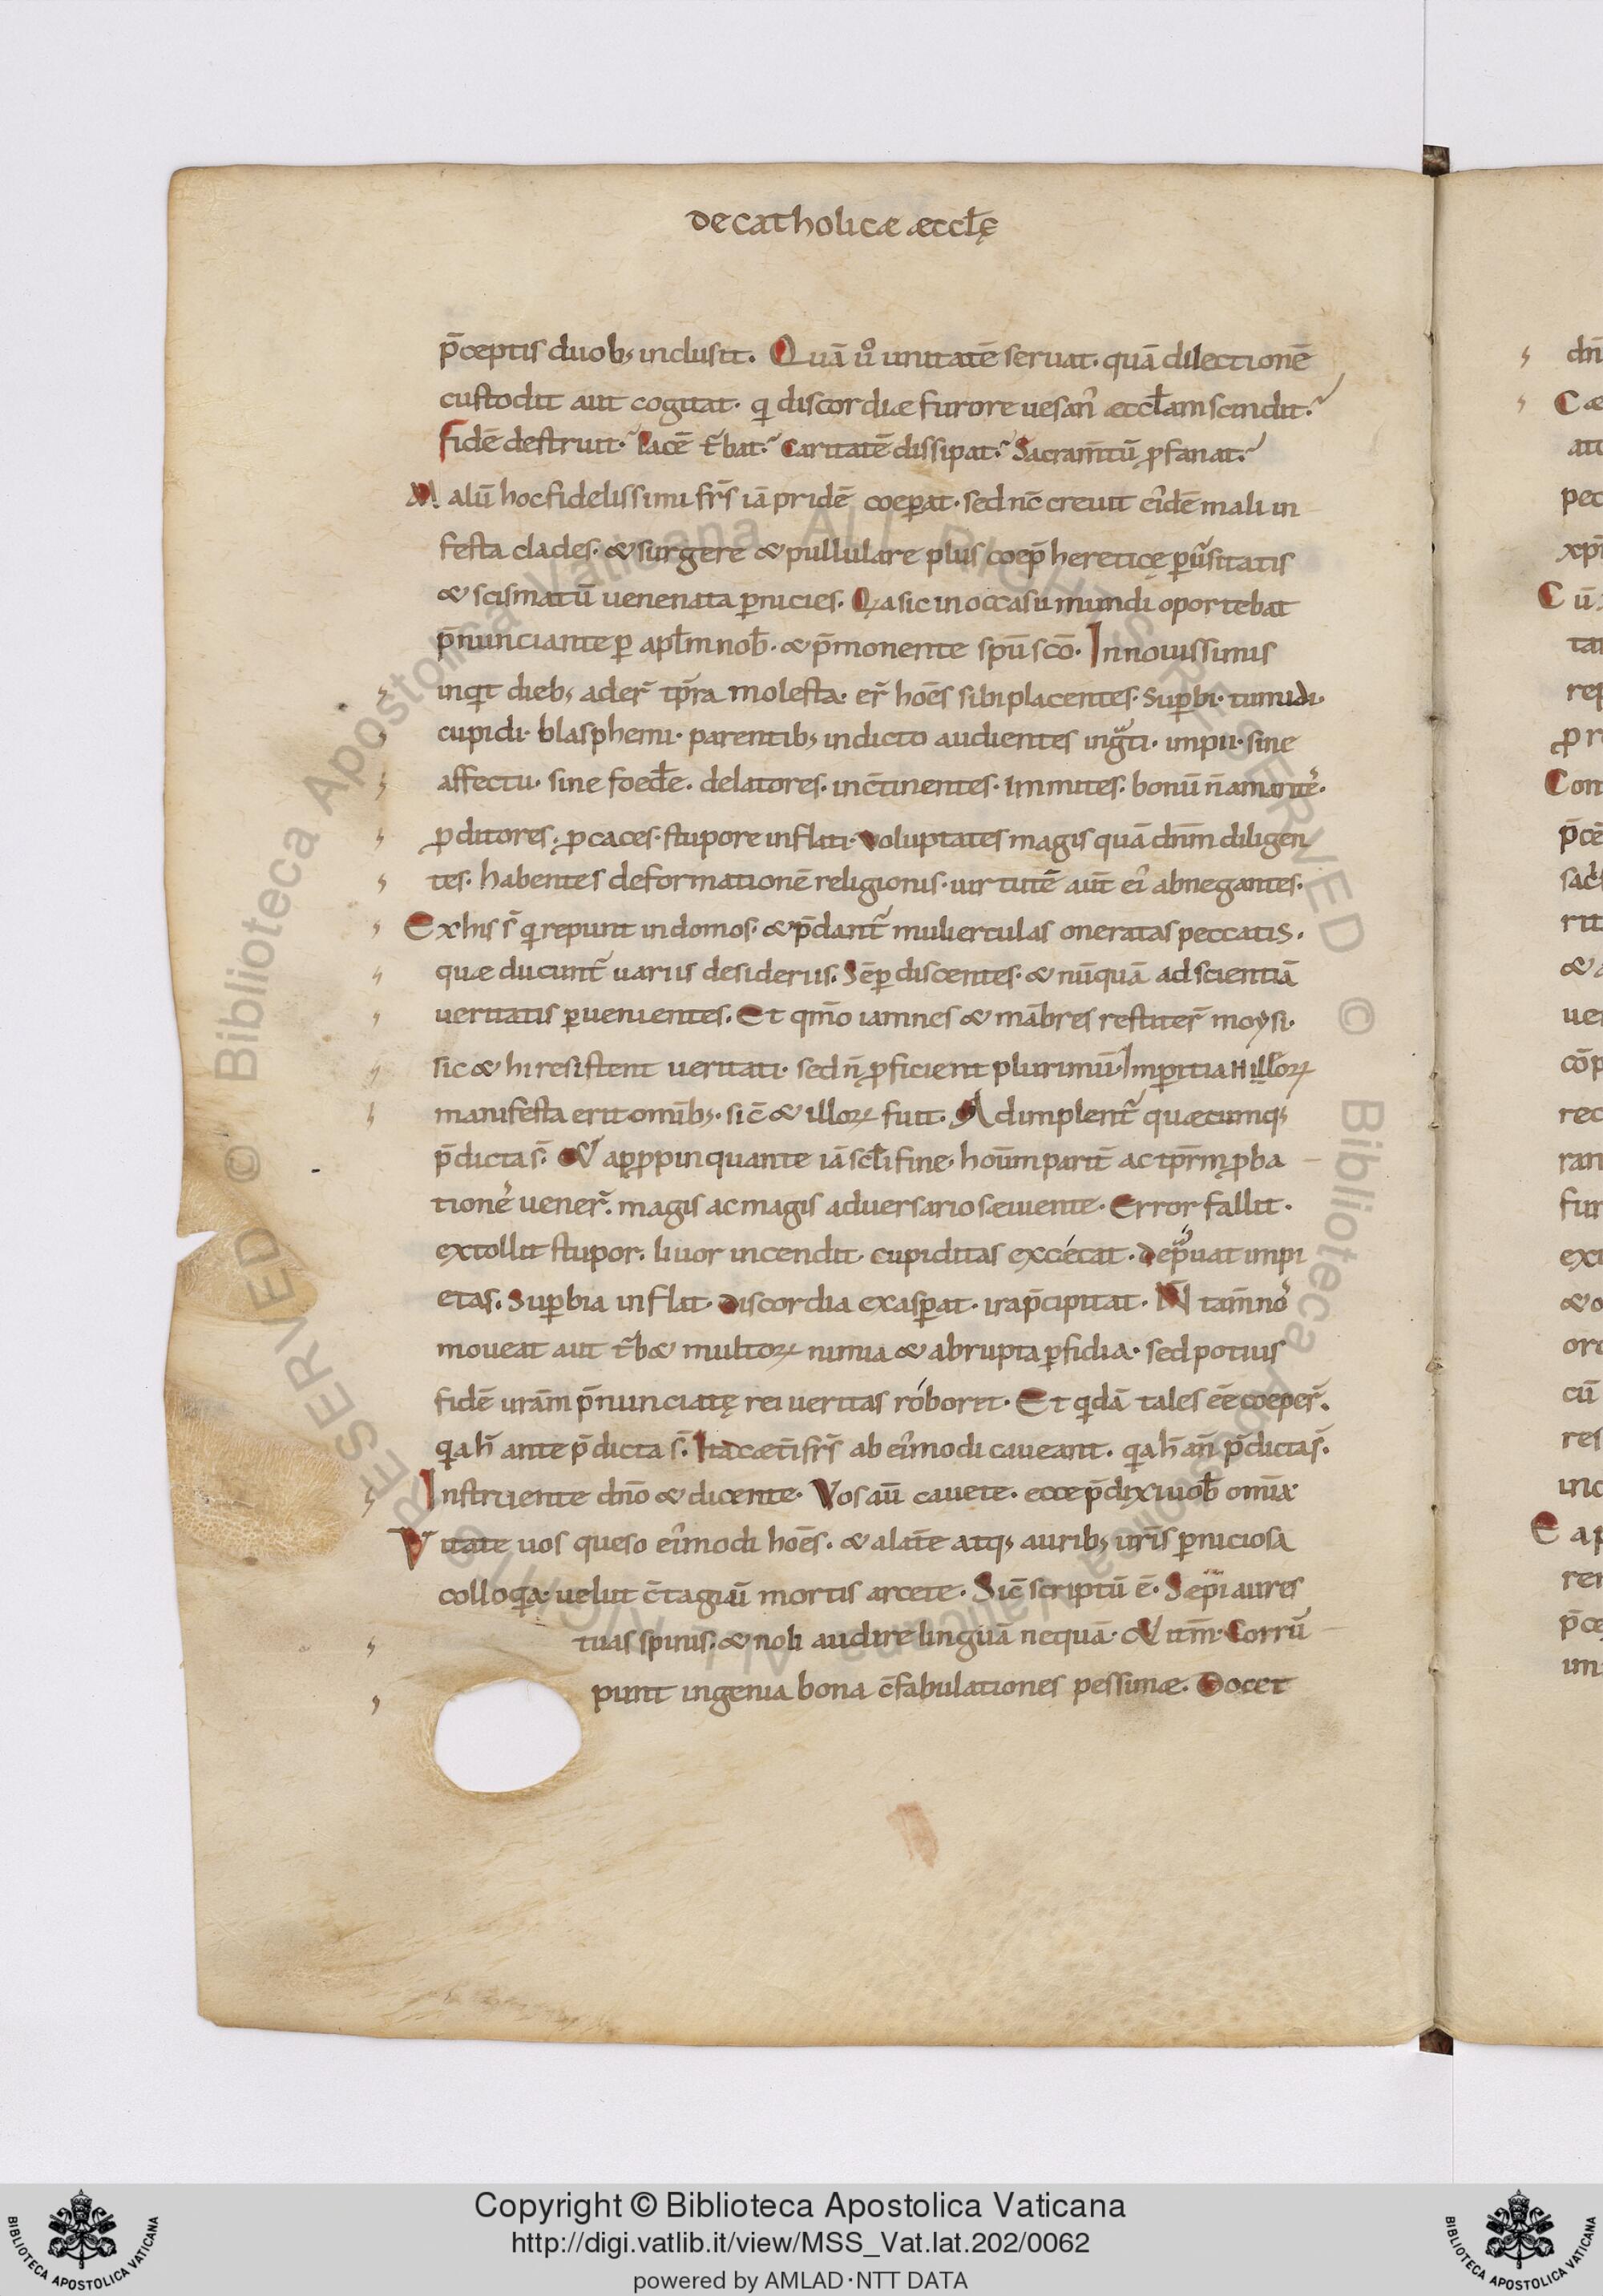 de catholicæ æccłę
p̄ceptis duob; inclusit. Quā ů unitatē seruat. quā dilectionē
custodit aut cogitat. qi discordiæ furore uesan᷒ æccłam scindit.
fidē destruit. Pacē t̄bat. Caritatē dissipat. Sacram̄tū ꝓfanat.
Malū hoc fidelissimi fr̄s iā pridē coeꝑat. sed nc̄ creuit ei᷒dē mali in
festa clades. & surgere & pullulare plus coep̄ hereticę ꝑūsitatis
& scismatū uenenata ꝑnicies. Q̇a sic in occasu mundi oportebat
p̄nunciante ꝑ apłm nob̄. & p̄monente spū sc̄o. In nouissimis
inqit dieb; ader̄ tp̄ra molesta. er̄ hoēs sibi placentes. Suꝑbi. tumidi.
cupidi. blasphemi. parentib; indicto audientes ingᵃti. impii. sine
affectu. sine foed̄e. delatores. inc̄tinentes. Immites. bonū n̄ amante᷒.
ꝓditores. ꝓcaces. stupore inflati. Voluptates magis quā dn̄m diligen
tes. habentes deformationē religionis. uirtutē aut̄ ei᷒ abnegantes.
Ex his s̄ qi repunt in domos. & p̄dant᷑ mulierculas oneratas peccatis.
quæ ducunt᷑ uariis desideriis. Sēꝑ discentes. & nūquā ad scientiā
ueritatis ꝑuenientes. Et qm̄o iamnes & mābres restiter̄ moysi.
sic & hi resistent ueritati. sed n̄ ꝓficient plurimū. Imꝑitia H illoꝝ
manifesta erit omīb;. sic̄ & illoꝝ fuit. Adimplent᷑ quæcumq;
p̄dicta s̄. Et apꝓpinquante iā scłi fine. hoūm parit̄ ac tp̄rm ꝓba
tione᷒ uener̄. magis ac magis adversario sæuiente. Error fallit.
extollit stupor. liuor incendit. cupiditas excécat. depᵃuat impi
etas. Suꝑbia inflat. discordia exasꝑat. ira p̄cipitat. N̄ tam̄ no᷒
moueat aut t̄bæ multoꝝ nimia & abrupta ꝑfidia. sed potius
fidē ur̄am p̄nunciatę rei ueritas róboret. Et qidā tales eē coeper̄.
qia h̄ ante p̄dicta s̄. Ita cæti fr̄s ab ei᷒modi caueant. qia h̄ an̄ p̄dicta s̄.
Instruente dn̄o & dicente. Vos aū cauete. ecce p̄dixi uob̄ omīa.
Vitate uos queso ei᷒modi hoēs. & a lat̄e atq; aurib; ur̄is ꝑniciosa
colloqia. uelut c̄tagiū mortis arcete. Sic̄ scriptū ē. Sepi aures
tuas spinis. & noli audire linguā nequā. Et itm̄. Corrū
punt ingenia bona c̄fabulationes pessimæ. Docet
dn̄
Cæ
au
pec
xp̄i
Cū
tar
rep
ꝓ r
Con
p̄cē
sacł
rit
& a
uer
cōp
rec
ran
fur
exi
& o
ord
cū
res
inc
E ap
rer
p̄ce
im
Copyright © Biblioteca Apostolica Vaticana
http://digi.vatlib.it/view/MSS_Vat.lat.202/0062
powered by AMLAD·NTT DATA
BIBLIOTECA APOSTOLICA VATICANA
BIBLIOTECA APOSTOLICA VATICANA
© Biblioteca Apostolica Vaticana ALL RIGHTS RESERVED © Biblioteca Apostolica Vaticana ALL RIGHTS RESERVED